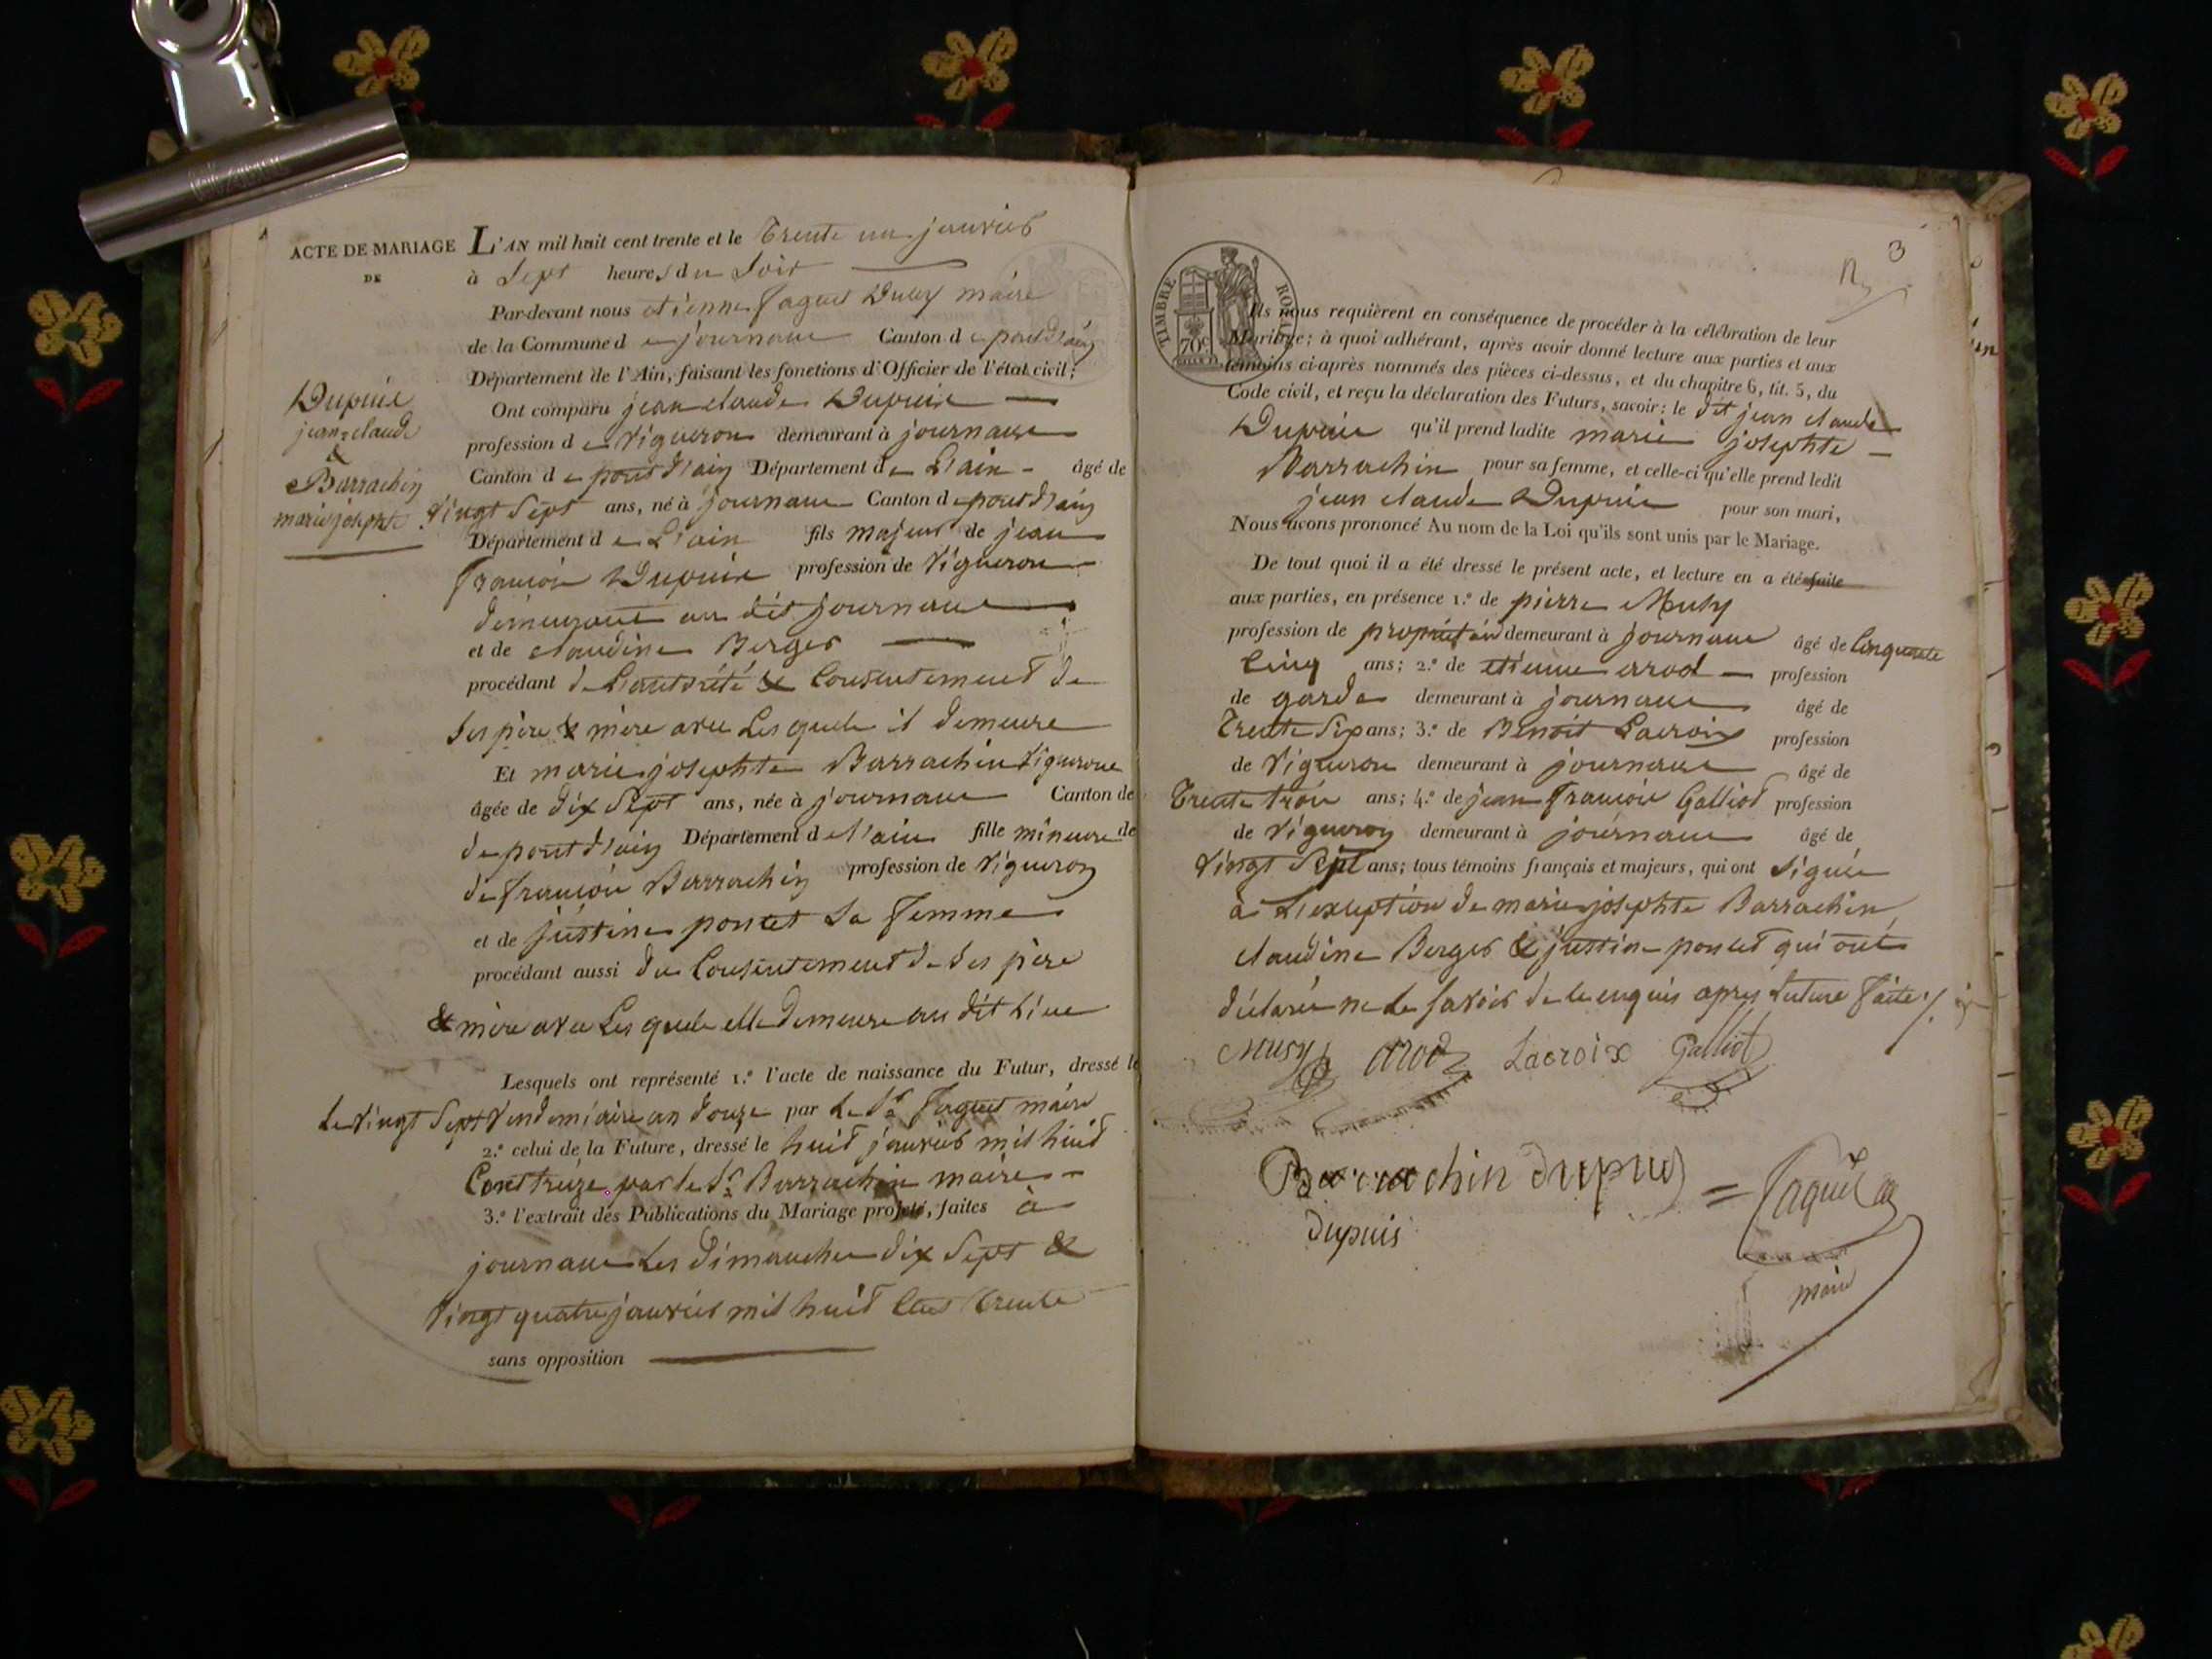 ACTE DE MARIAGE
DE
Dupuis
jean claude
&
Barrachin
marie josephte
L'AN mil huit cent trente et le Trente un janvier
à Sept heures du Soir
Par-devant nous etienne faguet maire
de la Commune de journans Canton de pont d'ain
Département de l'Ain, faisant les fonctions d'Officier de l'état civil;
Ont comparu jean claude Dupuis
profession de Vigneron demeurant à journans
Canton de pont d'ain Département de L'ain - âgé de
Vingt Sept ans, né à journans Canton de pont d'ain
Département de L'ain fils majeur de jean
françois Dupuis profession de Vigneron
demeurant au dit journans
et de claudine Berger
procédant de L'autorité & Consentement de
Ses père & mère avec Lesquels il demeure
Et marie josephte Barrachin Vigneronne
âgée de dix Sept ans, née à journans Canton de
de pont d'ain Département de l'ain fille mineure de
de françois Barrachin profession de Vigneron
et de justine poncet Sa femme
procédant aussi du Consentement de Ses père
& mère avec Lesquels elle demeure au dit Lieu
Lesquels ont représenté 1.º l'acte de naissance du Futur, dressé le
Le Vingt Sept Vendemiaire an douze par Le Sr faguet maire
2.º celui de la Future, dressé le huit janvier mil huit
Cent treize par le Sr Barrachin maire -
3.º l'extrait des Publications du Mariage projeté, faites à
journans Les dimanches dix Sept &
Vingt quatre janvier mil huit Cent trente
sans opposition
3
TIMBRE ROYAL
70c
Ils nous requièrent en conséquence de procéder à la célébration de leur
Mariage; à quoi adhérant, après avoir donné lecture aux parties et aux
témoins ci-après nommés des pièces ci-dessus, et du chapitre 6, tit. 5, du
Code civil, et reçu la déclaration des Futurs, savoir: le dit jean claude
Dupuis qu'il prend ladite marie josephte -
Barrachin pour sa femme, et celle-ci qu'elle prend ledit
jean claude Dupuis pour son mari,
Nous avons prononcé Au nom de la Loi qu'ils sont unis par le Mariage.
De tout quoi il a été dressé le présent acte, et lecture en a été faite
aux parties, en présence 1.º de pierre Musy
profession de propriétaire demeurant à journans âgé de Cinquante
Cinq ans; 2.º de etienne arod - profession
de garde demeurant à journans âgé de
Trente Six ans; 3.º de Benoit Lacroix profession
de Vigneron demeurant à journans âgé de
Trente trois ans; 4.º de jean françois Galliot profession
de Vigneron demeurant à journans âgé de
Vingt Sept ans; tous témoins français et majeurs, qui ont Signés
à L'exception de marie josephte Barrachin,
claudine Berger & justine poncet qui ont
déclaré ne le Savoir de le enquis apres lecture faite ./.
Musy arod Lacroix Galliot
Barrachin dupuis = faguet
dupuis
maire